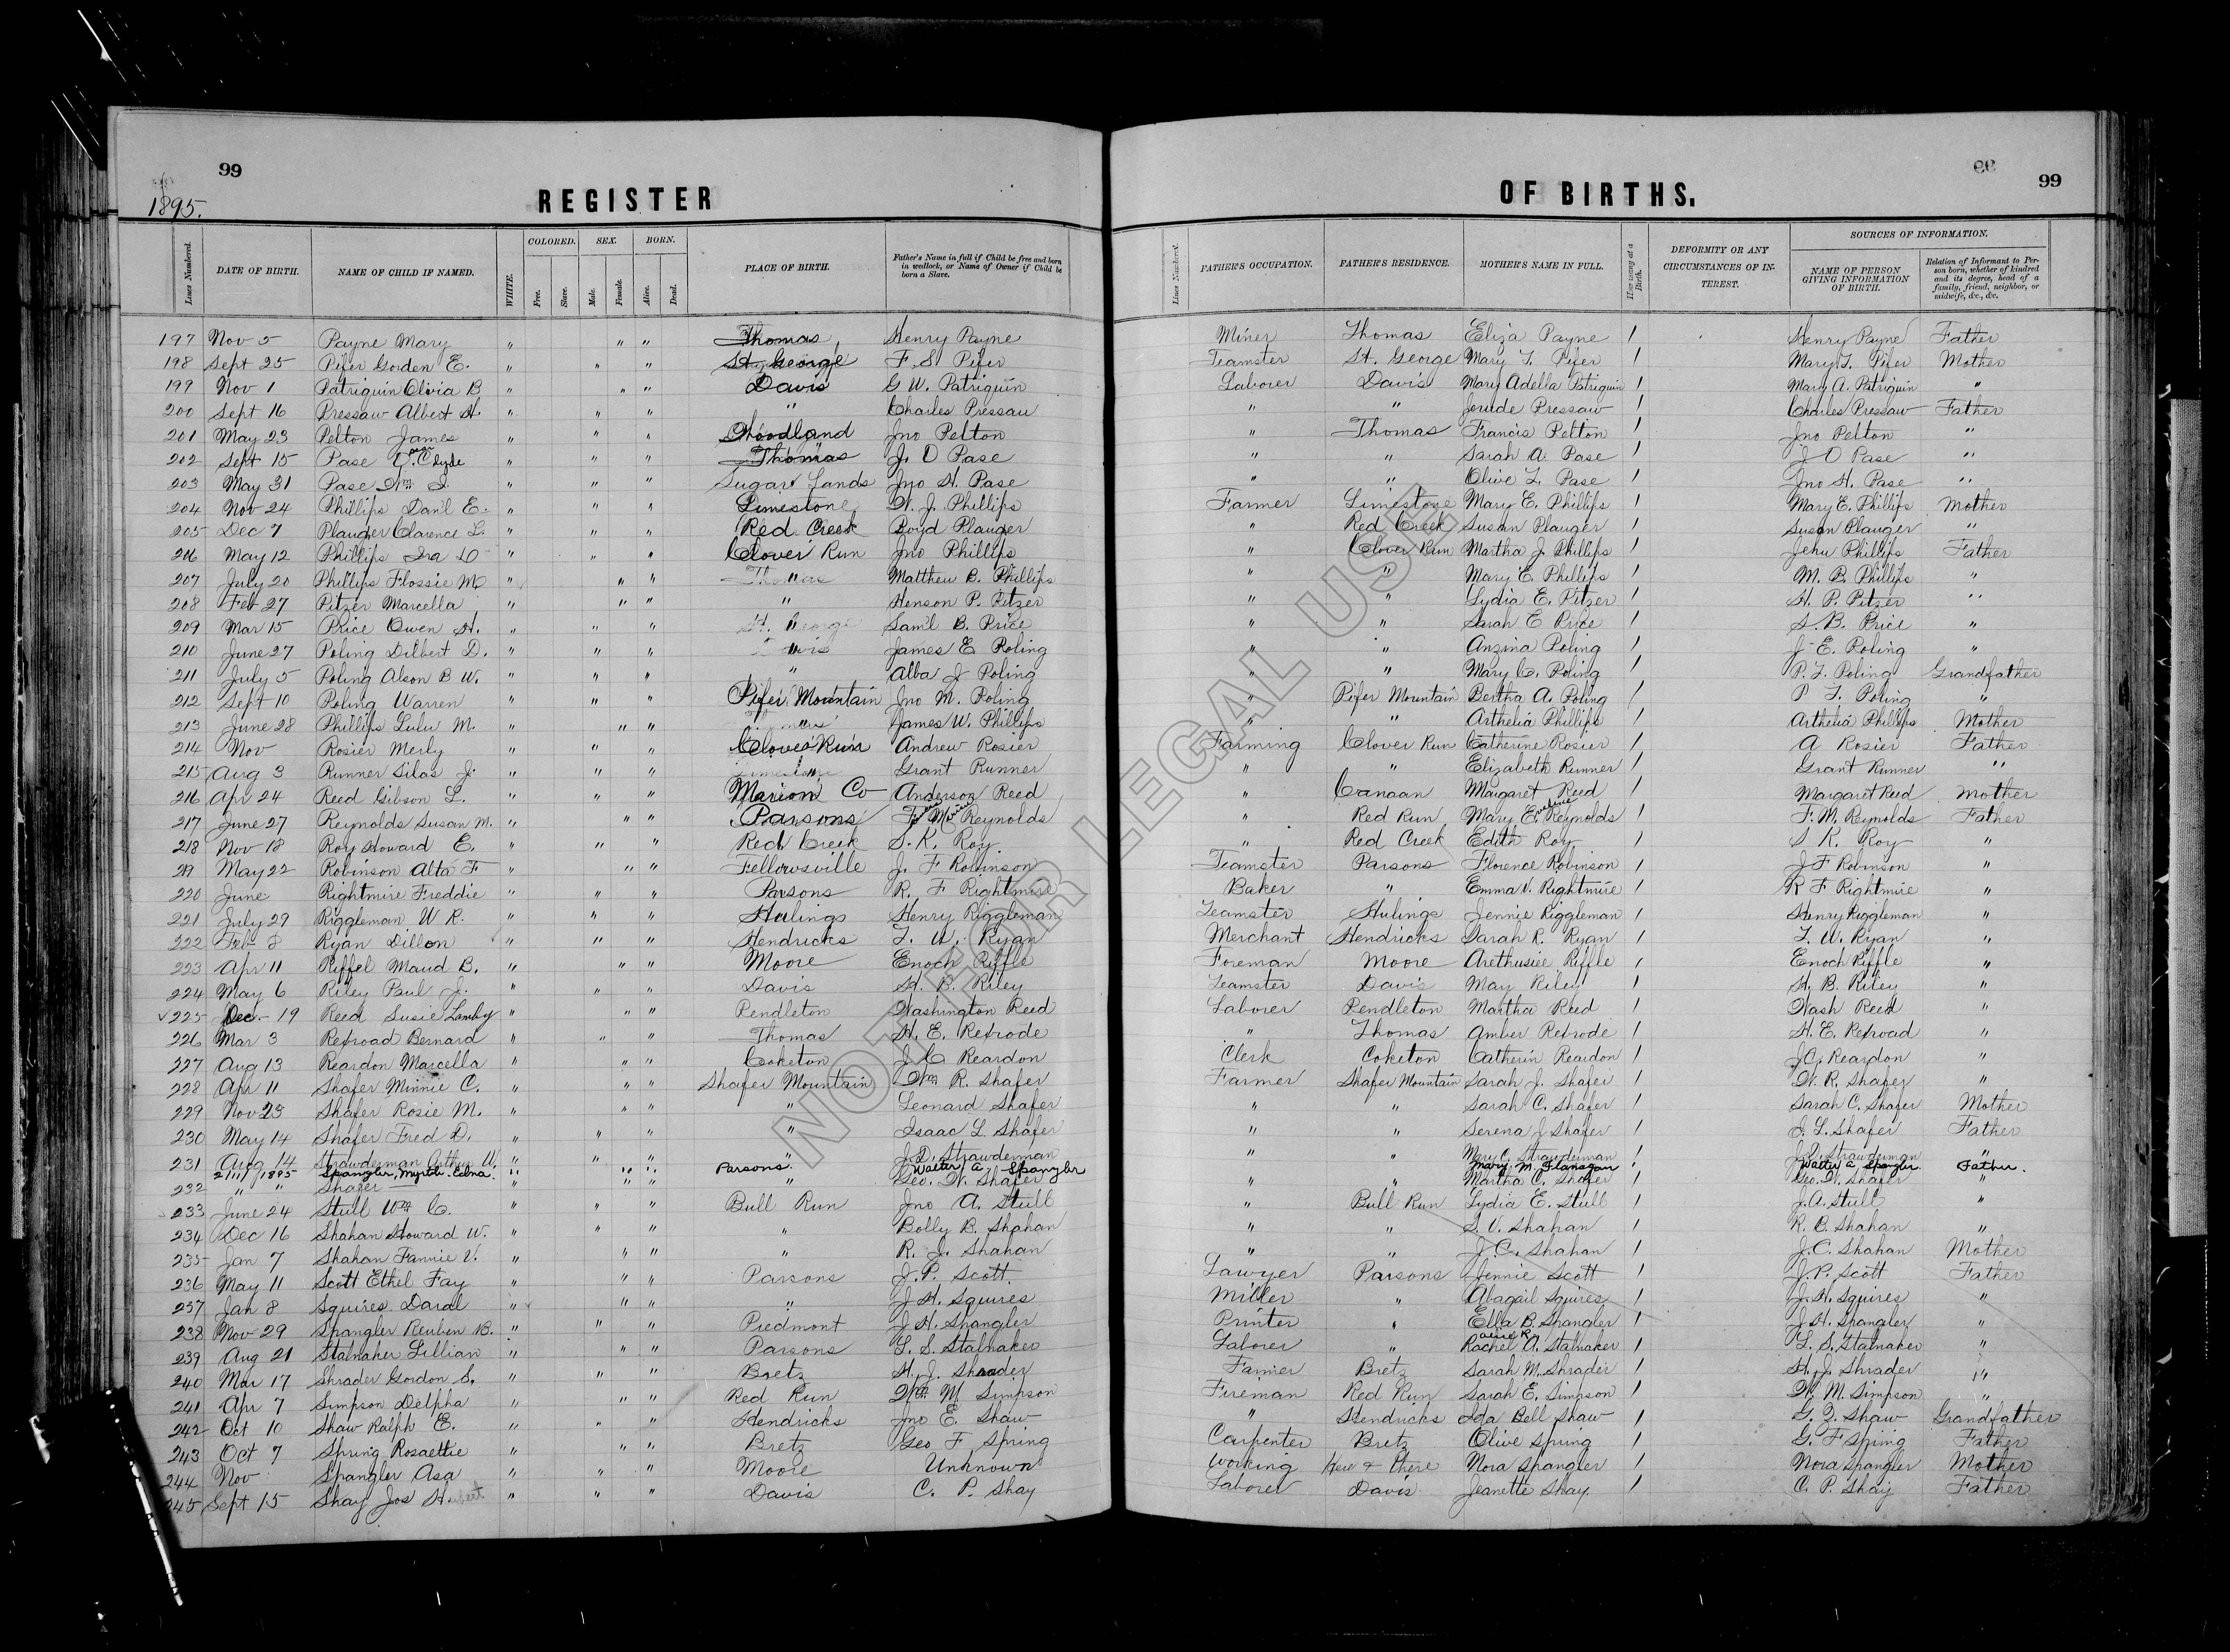 99
1895.
REGISTER
OF BIRTHS.
99
99
Lines Numbered. DATE OF BIRTH. NAME OF CHILD IF NAMED. WHITE. COLORED. Free. Slave. SEX. Male. Female. BORN. Alive. Dead. PLACE OF BIRTH. Father's Name in full if Child be free and born in wedlock, or Name of Owner if Child be born a Slave. Lines Numbered. FATHER'S OCCUPATION. FATHER'S RESIDENCE. MOTHER'S NAME IN FULL. How many at a Birth. DEFORMITY OR ANY CIRCUMSTANCES OF INTEREST. SOURCES OF INFORMATION. NAME OF PERSON GIVING INFORMATION OF BIRTH. Relation of Informant to Person born, whether of kindred and its degree, head of a family, friend, neighbor, or midwife, &c., &c.
197 Nov 5 Payne Mary " " " Thomas Henry Payne Miner Thomas Eliza Payne 1 Henry Payne Father
198 Sept 25 Pifer Gorden E. " " " St. George F. S. Pifer Teamster St. George Mary T. Pifer 1 Mary T. Pifer Mother
199 Nov 1 Patriquin Olivia B " " " Davis G W. Patriquin Laborer Davis Mary Adella Patriquin 1 Mary A. Patriquin "
200 Sept 16 Pressaw Albert H. " " " " Charles Pressaw " " Pressaw 1 Charles Pressaw Father
201 May 23 Pelton James " " " Woodland Jno Pelton " Thomas Francis Pelton 1 Jno Pelton "
202 Sept 15 Pase Clyde " " " Thomas J. O Pase " " Sarah A. Pase 1 J O Pase "
203 May 31 Pase Wm " " " Sugar Lands Jno H. Pase " " Olive L. Pase 1 Jno H. Pase "
204 Nov 24 Phillips Danl E. " " " Limestone W. J. Phillips Farmer Limestone Mary E. Phillips 1 Mary E. Phillips Mother
205 Dec 7 Plauger Clarence L. " " " Red Creek Boyd Plauger " Red Creek Susan Plauger 1 Susan Plauger "
206 May 12 Phillips Ira D " " " Clover Run Jno Phillips " Clover Run Martha J. Phillips 1 Jehu Phillips Father
207 July 20 Phillips Flossie M. " " " " Matthew B. Phillips " " Mary E. Phillips 1 M. B. Phillips "
208 Feb 27 Pitzer Marcella " " " " Henson P. Pitzer " " Lydia E. Pitzer 1 H. P. Pitzer "
209 Mar 15 Price Owen H. " " " " Saml B. Price " " Sarah E Price 1 S. B. Price "
210 June 27 Poling Dilbert D. " " " " James E Poling " " Anzina Poling 1 J. E. Poling "
211 July 5 Poling Alson B W. " " " " Alba J Poling " " Mary C. Poling 1 P. T. Poling Grandfather
212 Sept 10 Poling Warren " " " Pifer Mountain Jno M. Poling " Pifer Mountain Bertha A. Poling 1 P T. Poling "
213 June 28 Phillips Lulu M. " " " " James W. Phillips " " Arthelia Phillips 1 Arthelia Phillips Mother
214 Nov Rosier Merly " " " Clover Run Andrew Rosier Farming Clover Run Catherine Rosier 1 A Rosier Father
215 Aug 3 Runner Silas J. " " " " Grant Runner " " Elizabeth Runner 1 Grant Runner "
216 Apr 24 Reed Gibson L. " " " Marion Co Anderson Reed " Canaan Margaret Reed 1 Margaret Reed Mother
217 June 27 Reynolds Susan M. " " " Parsons F. M. Reynolds " Red Run Mary E. Reynolds 1 F. M. Reynolds Father
218 Nov 18 Roy Howard E. " " " Red Creek S. K. Roy " Red Creek Edith Roy 1 S K. Roy "
219 May 22 Robinson Alta F " " " Fellowsville J. F Robinson Teamster Parsons Florence Robinson 1 J F Robinson "
220 June Rightmire Freddie " " " Parsons R. F Rightmire Baker " Emma V. Rightmire 1 R F Rightmire "
221 July 29 Riggleman W R. " " " Hulings Henry Riggleman Teamster Hulings Jennie Riggleman 1 Henry Riggleman "
222 Feb 8 Ryan Dillon " " " Hendricks T. W. Ryan Merchant Hendricks Sarah R. Ryan 1 T. W. Ryan "
223 Apr 11 Riffel Maud B. " " " Moore Enoch Riffle Foreman Moore Arethusiee Riffle 1 Enoch Riffle "
224 May 6 Riley Paul J. " " " Davis H. B. Riley Teamster Davis May Riley 1 H. B. Riley "
225 Dec. 19 Reed Susie Lamby " " " Pendleton Washington Reed Laborer Pendleton Martha Reed 1 Wash Reed "
226 Mar 3 Rexroad Bernard " " " Thomas H. E. Rexrode " Thomas Amber Rexrode 1 H. E. Rexroad "
227 Aug 13 Reardon Marcella " " " Coketon J. C Reardon Clerk Coketon Catherin Reardon 1 J. C. Reardon "
228 Apr 11 Shafer Minnie C. " " " Shafer Mountain Wm R. Shafer Farmer Shafer Mountain Sarah J. Shafer 1 W. R. Shafer "
229 Nov 23 Shafer Rosie M. " " " " Leonard Shafer " " Sarah C. Shafer 1 Sarah C. Shafer Mother
230 May 14 Shafer Fred D. " " " " Isaac L. Shafer " " Serena J Shafer 1 I. L. Shafer Father
231 Aug 14 Strawderman Arthur W. " " " " J. D. Strawderman " " Mary C. Strawderman 1 J. D. Strawderman "
2/11/1895 Spangler, Myrtle Edna. " " " Parsons. Walter A. Spangler Mary M. Flanagan 1 Walter A Spangler Father.
232 " " Shafer " " " " Geo. W. Shafer " " Martha C. Shafer 1 Geo. W. Shafer "
233 June 24 Stull Wm C. " " " Bull Run Jno A. Stull " Bull Run Lydia E. Stull 1 J. A. Stull "
234 Dec 16 Shahan Howard W. " " " " Bolly B. Shahan " " S. V. Shahan 1 R. B. Shahan "
235 Jan 7 Shahan Fannie V. " " " " R. J. Shahan " " J. C. Shahan 1 J. C. Shahan Mother
236 May 11 Scott Ethel Fay " " " Parsons J. P. Scott. Lawyer Parsons Jennie Scott 1 J. P. Scott Father
237 Jan 8 Squires Daral " " " " J H. Squires Miller " Abagail Squires 1 J. H. Squires "
238 Nov 29 Spangler Reuben B. " " " Piedmont J H. Spangler Printer " Ella B. Spangler 1 J H. Spangler "
239 Aug 21 Stalnaker Lillian " " " Parsons L. S. Stalnaker Laborer " Rachel A. Stalnaker 1 L. S. Stalnaker "
240 Mar 17 Shrader Gordon S. " " " Bretz H. J. Shrader Farmer Bretz Sarah M. Shrader 1 H. J. Shrader "
241 Apr 7 Simpson Delpha " " " Red Run Wm M Simpson Fireman Red Run Sarah E. Simpson 1 W. M. Simpson "
242 Oct 10 Shaw Ralph E. " " " Hendricks Jno E. Shaw " Hendricks Ida Bell Shaw 1 Shaw Grandfather
243 Oct 7 Spring Rosaettie " " " Bretz Geo F. Spring Carpenter Bretz Olive Spring 1 G. F Spring Father
244 Nov Spangler Asa " " " Moore Unknown Working Here & there Nora Spangler 1 Nora Spangler Mother
245 Sept 15 Shay Jos Hubert " " " Davis C. P. Shay Laborer Davis Jeanette Shay 1 C. P. Shay Father
NOT FOR LEGAL USE